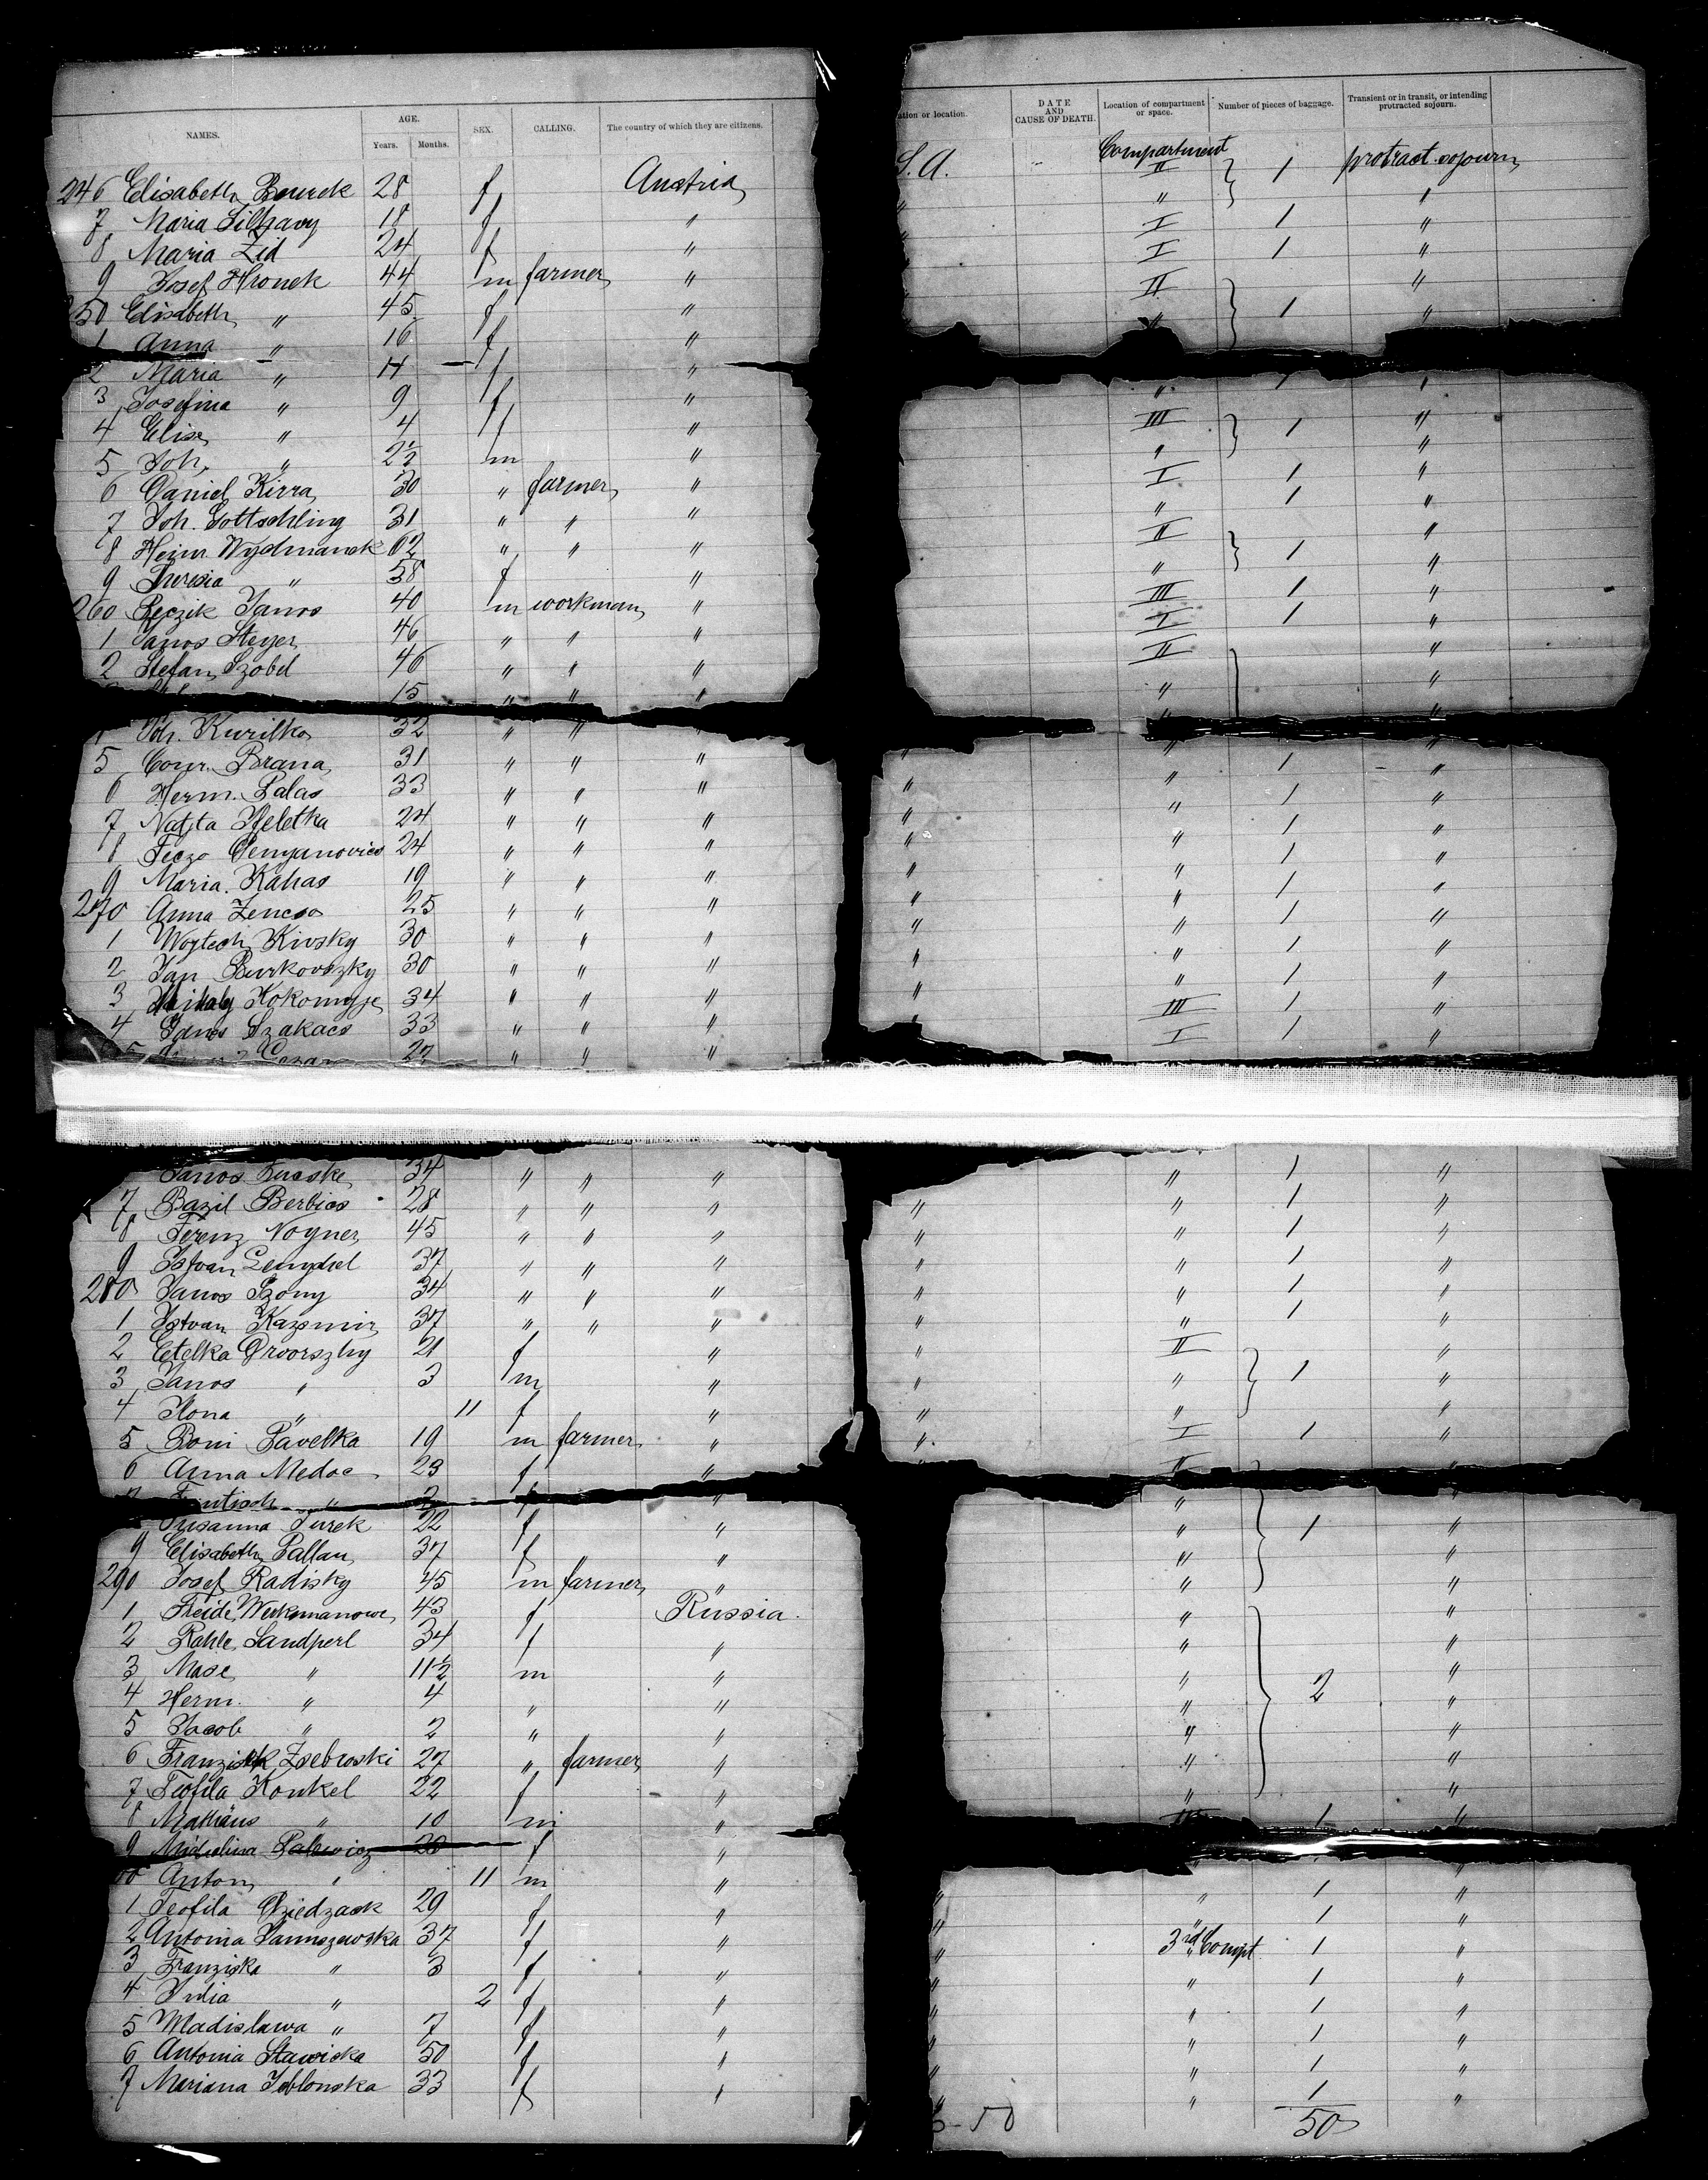 NAMES. AGE. Years. Months. SEX. CALLING. The country of which they are citizens. ation or location. DATE AND CAUSE OF DEATH. Location of compartment or space. Number of pieces of baggage. Transient or in transit, or intending protracted sojourn.
246 Elisabeth Bourek 28 f Austria S.A. Compartment II } 1 protract. sojourn
7 Maria Silhavy 18 f " " " "
8 Maria Zid 24 f " I 1 "
9 Josef Hronek 44 m farmer " I 1 "
250 Elisabeth " 45 f " II "
1 Anna " 16 f " " } 1 "
2 Maria " 11 f "
3 Josefina " 9 f " " "
4 Elise " 4 f " III } 1 "
5 Joh. " 2½ m " " "
6 Daniel Kirra 30 " farmer " I 1 "
7 Joh. Gottschling 31 " " " " 1 "
8 Heinr. Wydmansk 62 " " " II } 1 "
9 Theresia " 58 f " " "
260 Peczik Janos 40 m workman " III 1 "
1 Janos Steyer 46 " " " I 1 "
2 Stefan Szobel 46 " " " II "
15 " " " " "
Joh. Kurilko 32 " " " " "
5 Conr. Brana 31 " " " " " 1 "
6 Herm. Palas 33 " " " " " 1 "
7 Natita Heletka 24 " " " " " 1 "
8 Feczo Demjanovics 24 " " " " " 1 "
9 Maria Kahas 19 " " " " " 1 "
270 Anna Zencso 25 " " " " " 1 "
1 Wojtech Kivsky 30 " " " " " 1 "
2 Jan Burkovszky 30 " " " " " 1 "
3 Mihaly Kokomyje 34 " " " " III 1 "
4 Janos Szakacs 33 " " " " I 1 "
5 27 " " "
Janos 34 " " " " 1 "
7 Bazil Berbics 28 " " " " " 1 "
8 Ferenz Nogner 45 " " " " " 1 "
9 Istvan Lengyhel 37 " " " " " 1 "
280 Janos Szony 34 " " " " " 1 "
1 Istvan Kazsmir 37 " " " " " 1 "
2 Etelka Orvorszhy 21 f " " II "
3 Janos " 3 m " " " } 1 "
4 Ilona " 11 f " " " "
5 Boni Pavelka 19 m farmer " " I 1 "
6 Anna Medoc 23 f " II
7 " 2 " " "
Susanna Turek 22 f " " } 1 "
9 Elisabeth Pallan 37 f " " "
290 Josef Radisky 45 m farmer " " "
1 Freide Werkmanowe 43 f Russia. " "
2 Rahle Sandperl 34 f " " "
3 Mase " 11½ m " " } 2 "
4 Herm. " 4 " " " "
5 Jacob " 2 " " " "
6 Franzisek Zsebroski 27 " farmer " " "
7 Teofila Konkel 22 f " " "
8 Mathäus " 10 m " III 1 "
9 Michelina Palewicz 20 f "
00 Anton " 11 m " " " 1 "
1 Teofila Dziedzack 29 f " " " 1 "
2 Antonia Januszewska 37 f " " 3rd Compt. 1 "
3 Franziska " 3 f " " " 1 "
4 Julia " 2 f " " " 1 "
5 Wladislawa " 7 f " " " 1 "
6 Antonia Stawiska 50 f " " " 1 "
7 Mariana Joblonska 33 f " " " 1 "
50 50